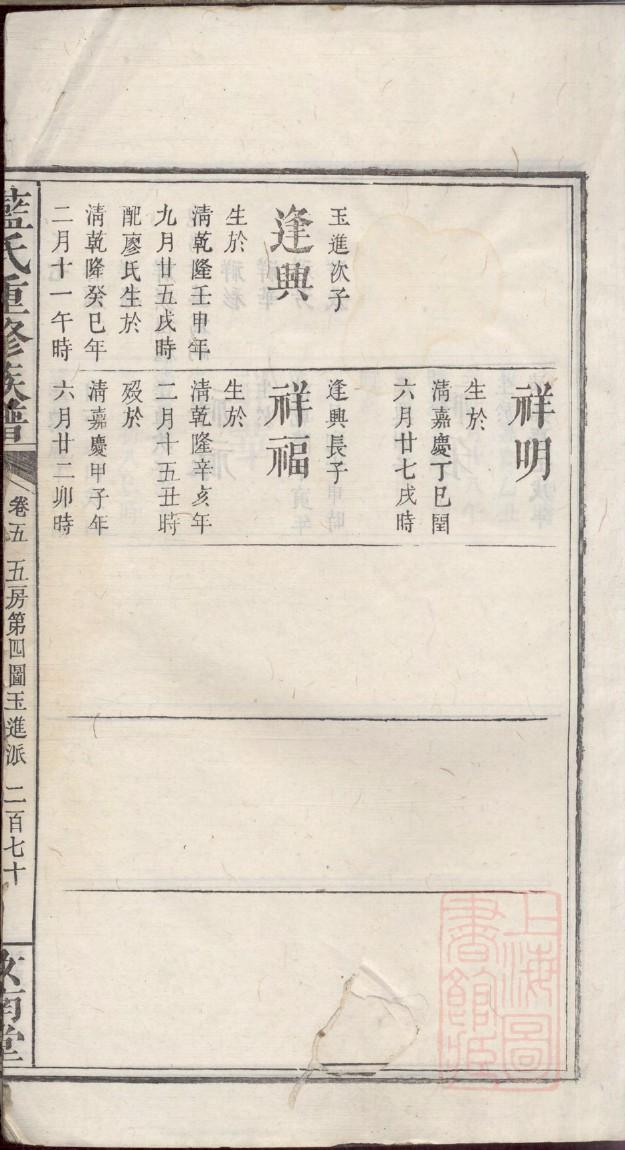 祥明
生於
清嘉慶丁巳閏
六月廿七戌時
玉進次子
逢興
生於
清乾隆壬申年
九月廿五戌時
配廖氏生於
清乾隆癸巳年
二月十一午時
逢興長子
祥福
生於
清乾隆辛亥年
二月十五丑時
歿於
清嘉慶甲子年
六月廿二卯時
藍氏重修族譜
卷五 五房第四圖玉進派 二百七十
汝南堂
上海圖
書館藏